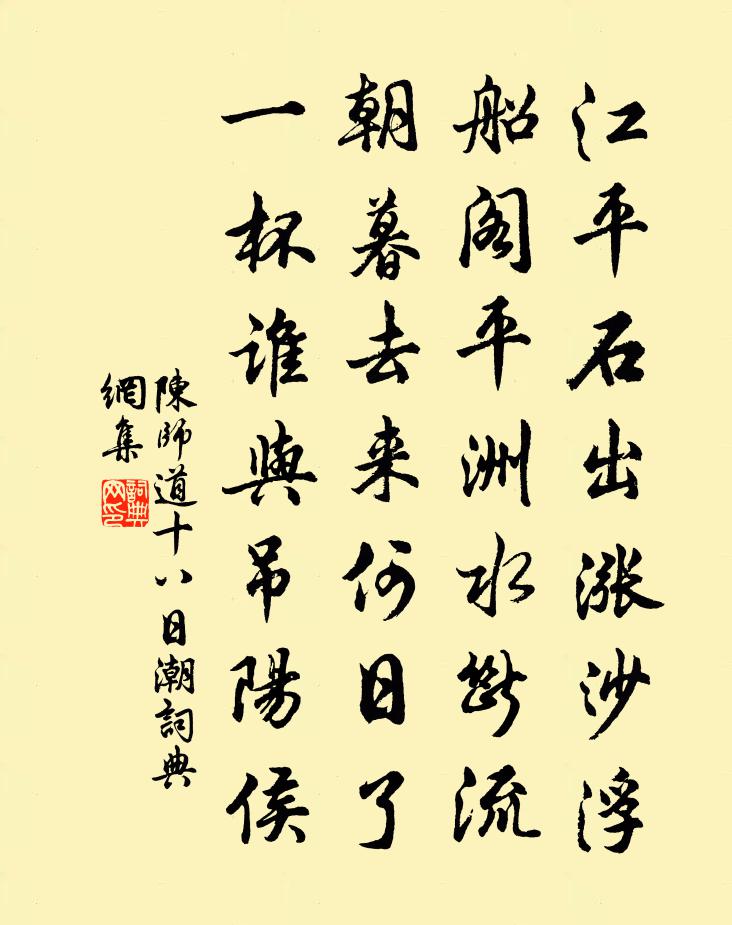 江平石出漲沙浮
船閣平洲水斷流
朝暮去来何日了
一杯誰與吊陽侯
陳師道十八日潮詞典
網集
詞典
网印